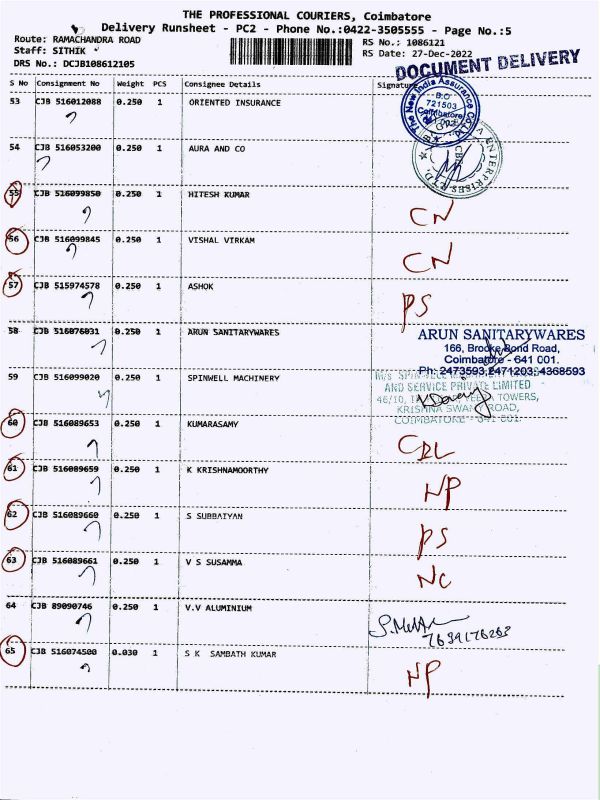 THE PROFESSIONAL COURIERS, Coimbatore
Delivery Runsheet - PC2 - Phone No.:0422-3505555 - Page No.:5
Route: RAMACHANDRA ROAD
RS No.: 1086121
Staff: SITHIK
RS Date: 27-Dec-2022
DRS No.: DCJB108612105
DOCUMENT DELIVERY
S No Consignment No Weight PCS Consignee Details Signature
53 CJB 516012088 0.250 1 ORIENTED INSURANCE
The New India Assurance Co.
B.O
721503
Coimbatore
54 CJB 516053200 0.250 1 AURA AND CO
ENTERPRISES
55 CJB 516099850 0.250 1 HITESH KUMAR
CN
56 CJB 516099845 0.250 1 VISHAL VIRKAM
CN
57 CJB 515974578 0.250 1 ASHOK
PS
58 CJB 516076031 0.250 1 ARUN SANITARYWARES
ARUN SANITARYWARES
166, Brooke Bond Road,
Coimbatore - 641 001.
Ph: 2473593, 2471203, 4368593
59 CJB 516099020 0.250 1 SPINWELL MACHINERY
AND SERVICE PRIVATE LIMITED
TOWERS,
KRISHNA SWAMY ROAD,
COIMBATORE - 641 001.
60 CJB 516089653 0.250 1 KUMARASAMY
CDL
61 CJB 516089659 0.250 1 K KRISHNAMOORTHY
NP
62 CJB 516089660 0.250 1 S SUBBAIYAN
PS
63 CJB 516089661 0.250 1 V S SUSAMMA
NC
64 CJB 89090746 0.250 1 V.V ALUMINIUM
65 CJB 516074500 0.030 1 S K SAMBATH KUMAR
NP